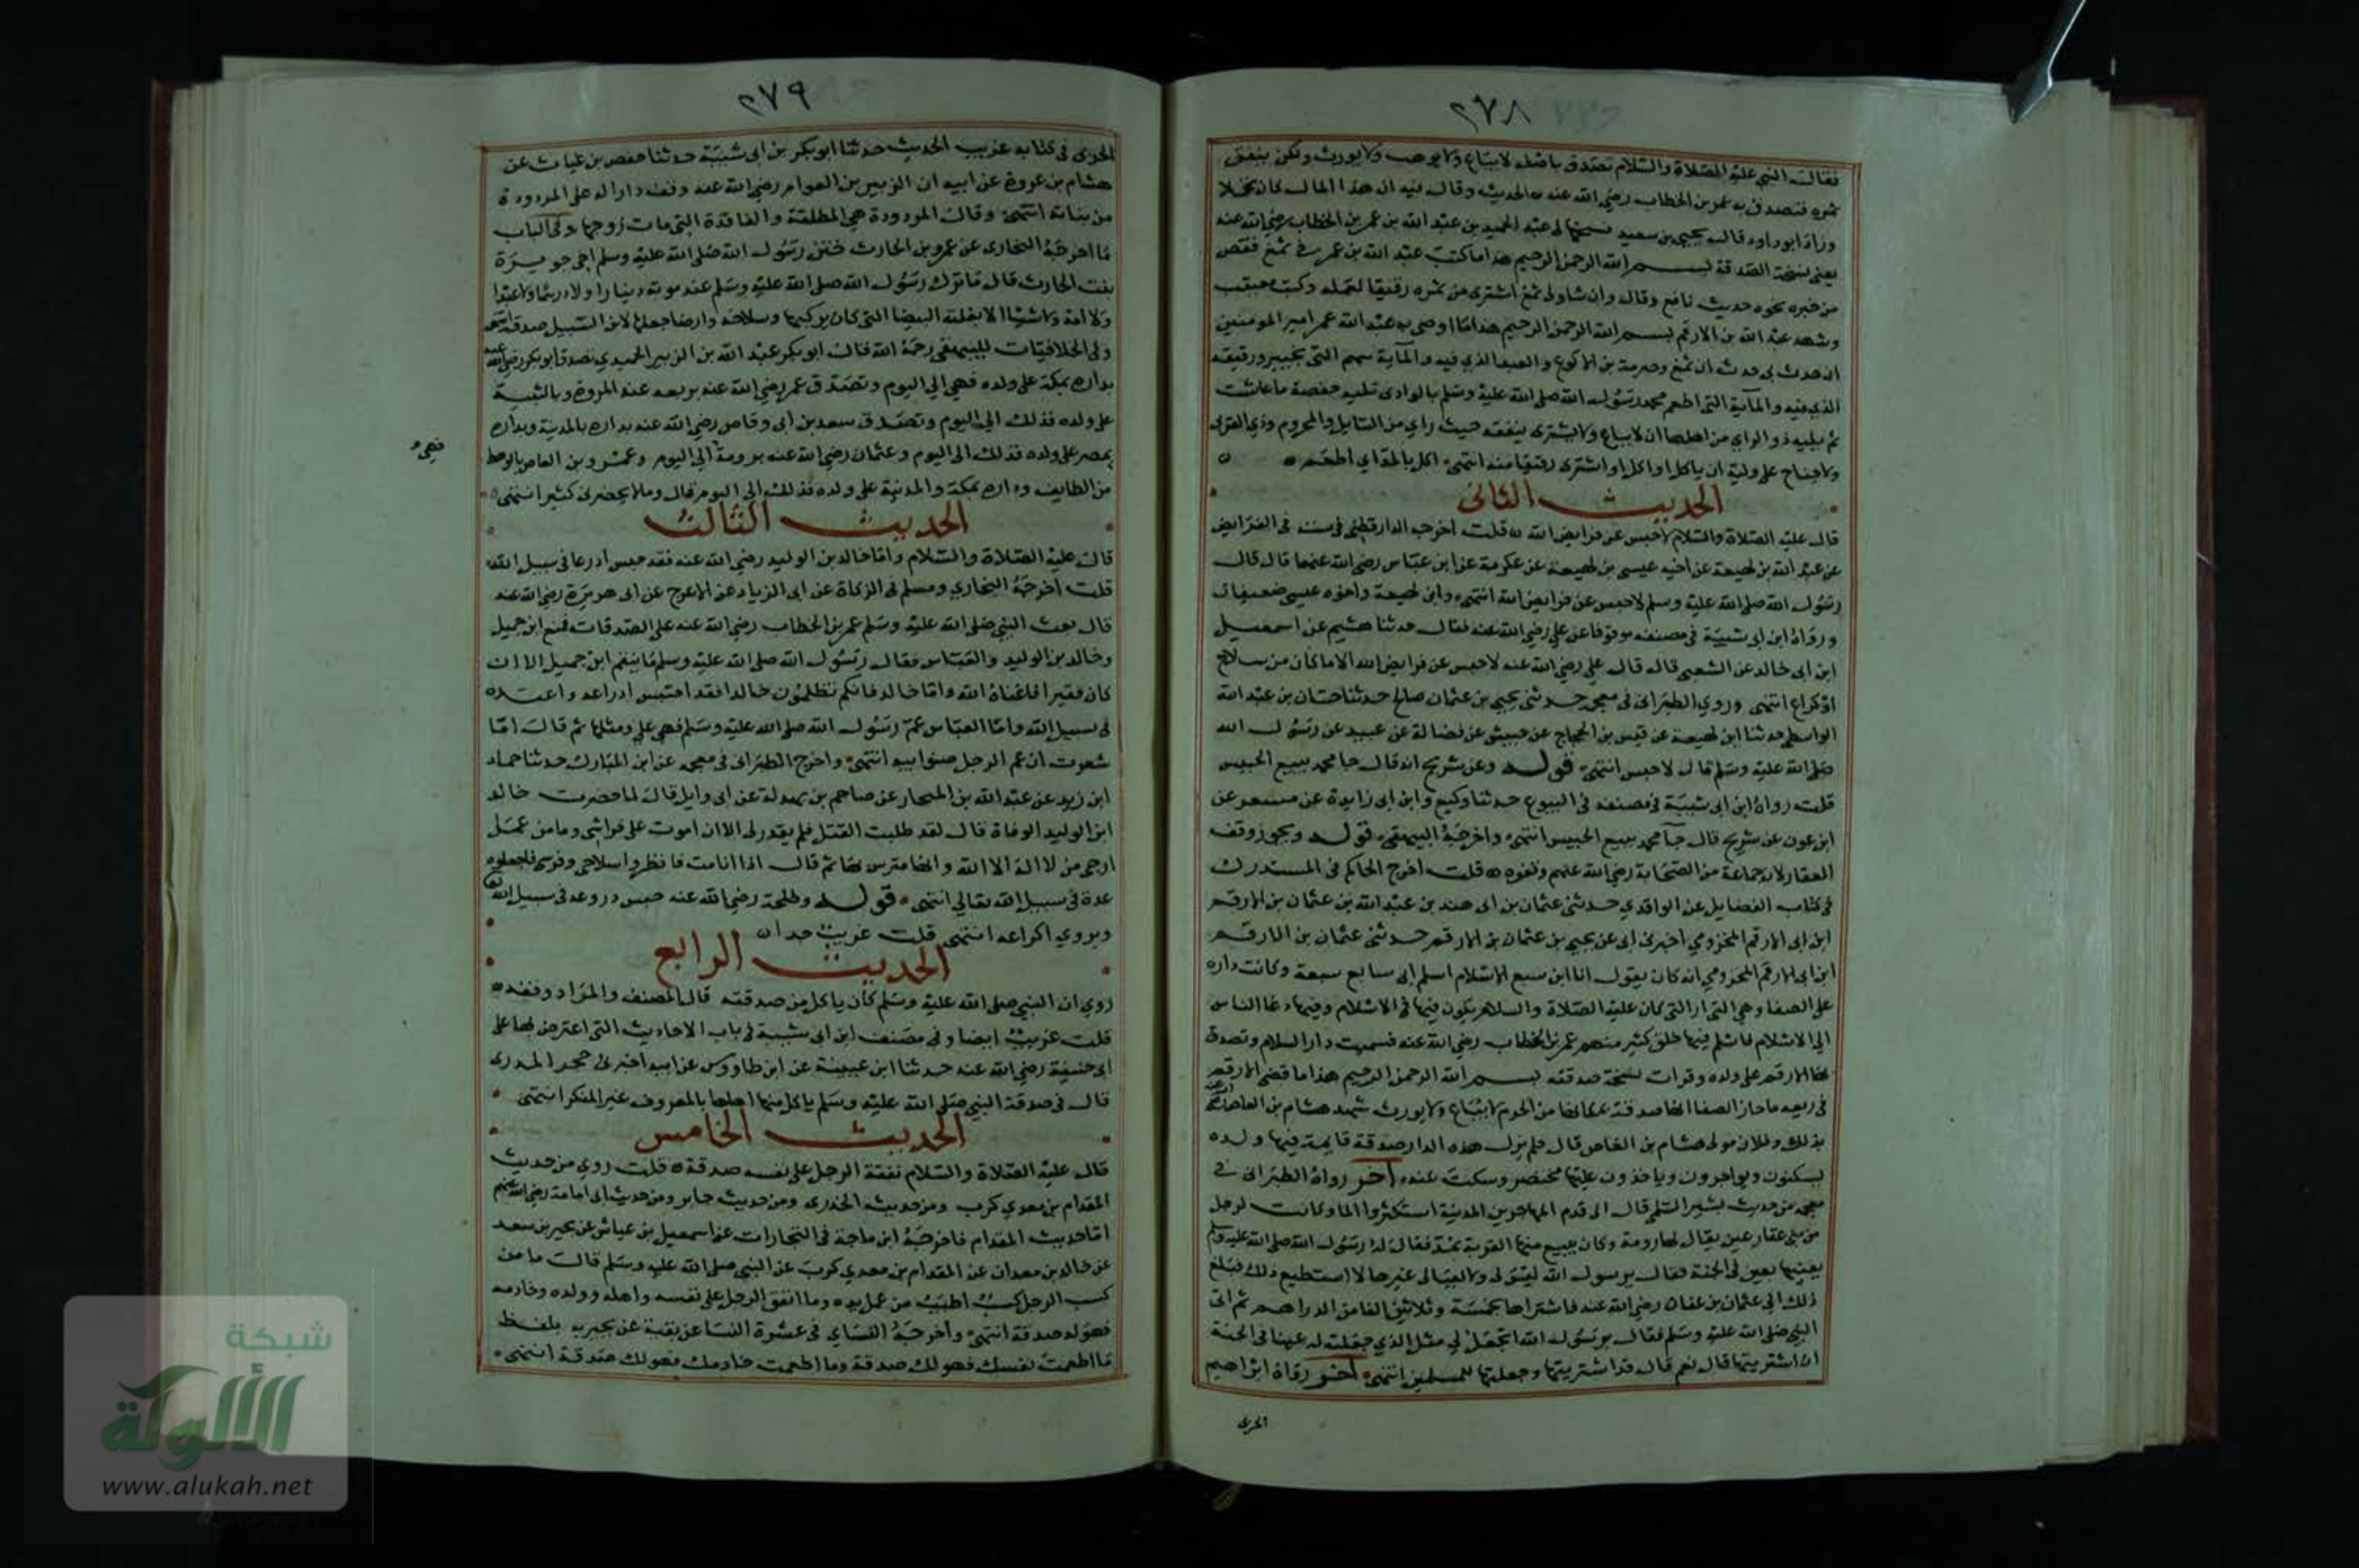 ٢٧٨
فقال النبي عليه الصلاة والسلام تصدق باصله لا يباع ولا يوهب ولا يورث ولكن ينفق
ثمره فتصدق به عمر بن الخطاب رضي الله عنه الحديث وقال فيه ان هذا المال كان نخلا
وزاد ابو داود قال يحيى بن سعيد نسخها لي عبد الحميد بن عبد الله بن عمر بن الخطاب رضي الله عنه
يعني نسخة الصدقة بسم الله الرحمن الرحيم هذا ما كتب عبد الله بن عمر في ثمغ فقص
من خبره نحو حديث نافع وقال وان شا ولي ثمغ اشترى من ثمره رقيقا لعمله وكتب معيقب
وشهد عبد الله بن الارقم بسم الله الرحمن الرحيم هذا ما اوصى به عبد الله عمر امير المومنين
ان حدث بي حدث ان ثمغ وصرمة بن الاكوع والعبد الذي فيه والماية سهم التي بخيبر ورقيقه
الذي فيه والماية التي اطعمه محمد رسول الله صلى الله عليه وسلم بالوادي تليه حفصة ما عاشت
ثم يليه ذو الراي من اهلها ان لا يباع ولا يشترى ينفقه حيث راي من السايل والمحروم وذي القربى
ولا جناح على وليه ان ياكل او اكل او اشترى رقيقا منه انتهى
الحديث الثانى
قال عليه الصلاة والسلام لا حبس عن فرايض الله قلت اخرجه الدارقطني في سننه في الفرايض
عن عبد الله بن لهيعة عن اخيه عيسى بن لهيعة عن عكرمة عن ابن عباس رضي الله عنهما قال قال
رسول الله صلى الله عليه وسلم لا حبس عن فرايض الله انتهى وابن لهيعة واخوه عيسى ضعيفان
ورواه ابن ابي شيبة في مصنفه موقوفا عن علي رضي الله عنه فقال حدثنا هشيم عن اسمعيل
ابن ابي خالد عن الشعبي قال قال علي رضي الله عنه لا حبس عن فرايض الله الا ما كان من سلاح
او كراع انتهى وروى الطبراني في معجمه حدثنى يحيى بن عثمان صالح حدثنا حسان بن عبد الله
الواسطي حدثنا ابن لهيعة عن قيس بن الحجاج عن حبيش عن فضالة عن عبيد عن رسول الله
صلى الله عليه وسلم قال لا حبس انتهى قوله وعن شريح انه قال جا محمد ببيع الحبيس
قلت رواه ابن ابي شيبة في مصنفه في البيوع حدثنا وكيع وابن ابي زايدة عن مسعر عن
ابن عون عن شريح قال جا محمد ببيع الحبيس انتهى واخرجه البيهقي قوله ويجوز وقف
العقار لان جماعة من الصحابة رضي الله عنهم وقفوه قلت اخرج الحاكم في المستدرك
في كتاب الفضايل عن الواقدي حدثنى عثمان بن ابي هند بن عبد الله بن عثمان بن الارقم
ابن ابي الارقم المخزومي اخبرني ابي عن يحيى بن عثمان بن الارقم حدثنى عثمان بن الارقم
ابن ابي الارقم المخزومي انه كان يقول انا ابن سبع الاسلام اسلم ابي سابع سبعة وكانت داره
على الصفا وهي الدار التي كان عليه الصلاة والسلام يكون فيها في الاسلام وفيها دعا الناس
الى الاسلام فاسلم فيها خلق كثير منهم عمر بن الخطاب رضي الله عنه فسميت دار السلام وتصدق
بها الارقم على ولده وقرات نسخة صدقته بسم الله الرحمن الرحيم هذا ما قضى الارقم
في ربعه ما حاز الصفا انها صدقة بمكانها من الحرم لا تباع ولا يورث شهد هشام بن العاص
بذلك وفلان مولى هشام بن العاص قال فلم يزل هذه الدار صدقة قايمة فيها ولده
يسكنون ويواجرون وياخذون عليها مختصر وسكت عنه اخر رواه الطبراني في
معجمه من حديث بشير السلمي قال لما قدم المهاجرين المدينة استكثروا الما وكانت لرجل
من بني غفار عين يقال لها رومة وكان يبيع منها القربة بمد فقال له رسول الله صلى الله عليه وسلم
بعنيها بعين في الجنة فقال يرسول الله ليس لي ولا لعيالي غيرها لا استطيع ذلك فبلغ
ذلك الى عثمان بن عفان رضي الله عنه فاشتراها بخمسة وثلاثين الفا من الدراهم ثم اتى
النبي صلى الله عليه وسلم فقال يرسول الله اتجعل لي مثل الذي جعلته له عينا في الجنة
ان اشتريتها قال نعم قال قد اشتريتها وجعلتها للمسلمين انتهى اخر رواه ابراهيم
الحربي
٢٧٩
الحربى في كتابه غريب الحديث حدثنا ابو بكر بن ابي شيبة حدثنا حفص بن غياث عن
هشام بن عروة عن ابيه ان الزبير بن العوام رضي الله عنه وقف دارا له على المردودة
من بناته انتهى وقال المردودة هي المطلقة والفاقدة التي مات زوجها وفي الباب
ما اخرجه البخارى عن عمرو بن الحارث ختن رسول الله صلى الله عليه وسلم اخي جويرة
بنت الحارث قال ما ترك رسول الله صلى الله عليه وسلم عند موته دينارا ولا درهما ولا عبدا
ولا امة ولا شيئا الا بغلته البيضا التي كان يركبها وسلاحه وارضا جعلها لابن السبيل صدقة انتهى
وفي الخلافيات للبيهقي رحمه الله قال ابو بكر عبد الله بن الزبير الحميدي تصدق ابو بكر رضي الله عنه
بداره بمكة على ولده فهي الى اليوم وتصدق عمر رضي الله عنه بربعه عند المروة وبالثنية
على ولده فذلك الى اليوم وتصدق سعد بن ابي وقاص رضي الله عنه بداره بالمدينة وبداره
بمصر على ولده فذلك الى اليوم وعثمان رضي الله عنه برومة الى اليوم وعمرو بن العاص بالوهط
فهي
من الطايف وداره بمكة والمدينة على ولده فذلك الى اليوم قال وما لا يحضرنى كثير انتهى
الحديث الثالث
قال عليه الصلاة والسلام واما خالد بن الوليد رضي الله عنه فقد حبس ادرعا في سبيل الله
قلت اخرجه البخاري ومسلم في الزكاة عن ابي الزياد عن الاعرج عن ابي هريرة رضي الله عنه
قال بعث النبي صلى الله عليه وسلم عمر بن الخطاب رضي الله عنه على الصدقات فمنع ابن جميل
وخالد بن الوليد والعباس فقال رسول الله صلى الله عليه وسلم ما ينقم ابن جميل الا ان
كان فقيرا فاغناه الله واما خالد فانكم تظلمون خالدا فقد احتبس ادراعه واعتده
في سبيل الله واما العباس عم رسول الله صلى الله عليه وسلم فهي علي ومثلها ثم قال اما
شعرت ان عم الرجل صنو ابيه انتهى واخرج الطبراني في معجمه عن ابن المبارك حدثنا حماد
ابن زيد عن عبد الله بن المختار عن عاصم بن بهدلة عن ابي وايل قال لما حضرت خالد
ابن الوليد الوفاة قال لقد طلبت القتل فلم يقدر لي الا ان اموت على فراشى وما من عمل
ارجى من لا اله الا الله وانا مترس بها ثم قال اذا انا مت فانظروا سلاحي وفرسي فاجعلوه
عدة في سبيل الله تعالى انتهى قوله وطلحة رضي الله عنه حبس دروعه في سبيل الله
ويروي اكراعه انتهى قلت غريب جدا
الحديث الرابع
روي ان النبي صلى الله عليه وسلم كان ياكل من صدقته قال المصنف والمراد وقفه
قلت غريب ايضا وفي مصنف ابن ابي شيبة في باب الاحاديث التي اعترض بها على
ابي حنيفة رضي الله عنه حدثنا ابن عيينة عن ابن طاووس عن ابيه اخبرنى حجر المدرى
قال في صدقة النبي صلى الله عليه وسلم ياكل منها اهلها بالمعروف غير المنكر انتهى
الحديث الخامس
قال عليه الصلاة والسلام نفقة الرجل على نفسه صدقة قلت روي من حديث
المقدام بن معدي كرب ومن حديث الخدرى ومن حديث جابر ومن حديث ابي امامة رضي الله عنهم
اما حديث المقدام فاخرجه ابن ماجة في التجارات عن اسمعيل بن عياش عن بحير بن سعد
عن خالد بن معدان عن المقدام بن معدي كرب عن النبي صلى الله عليه وسلم قال ما من
كسب الرجل كسب اطيب من عمل يده وما انفق الرجل على نفسه واهله وولده وخادمه
فهو له صدقة انتهى واخرجه النساي في عشرة النسا عن بقية عن بحير به بلفظ
ما اطعمت نفسك فهو لك صدقة وما اطعمت خادمك فهو لك صدقة انتهى
شبكة
الألوكة
www.alukah.net